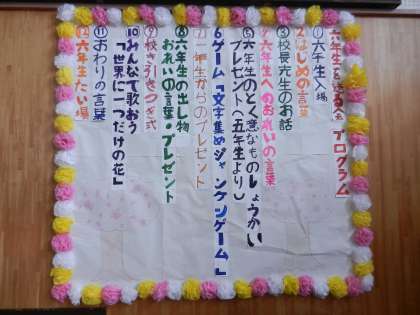 六年生を送る会 プログラム
①六年生入場
②はじめの言葉
③校長先生のお話
④六年生へのお礼の言葉
⑤六年生のとく意なものしょうかい
プレゼント(五年生より)
6ゲーム「文字集めジャンケンゲーム」
⑦一年生からのプレゼント
⑧六年生の出し物
お礼の言葉・プレゼント
⑨校き引きつぎ式
⑩みんなで歌おう
「世界に一つだけの花」
⑪おわりの言葉
⑫六年生たい場